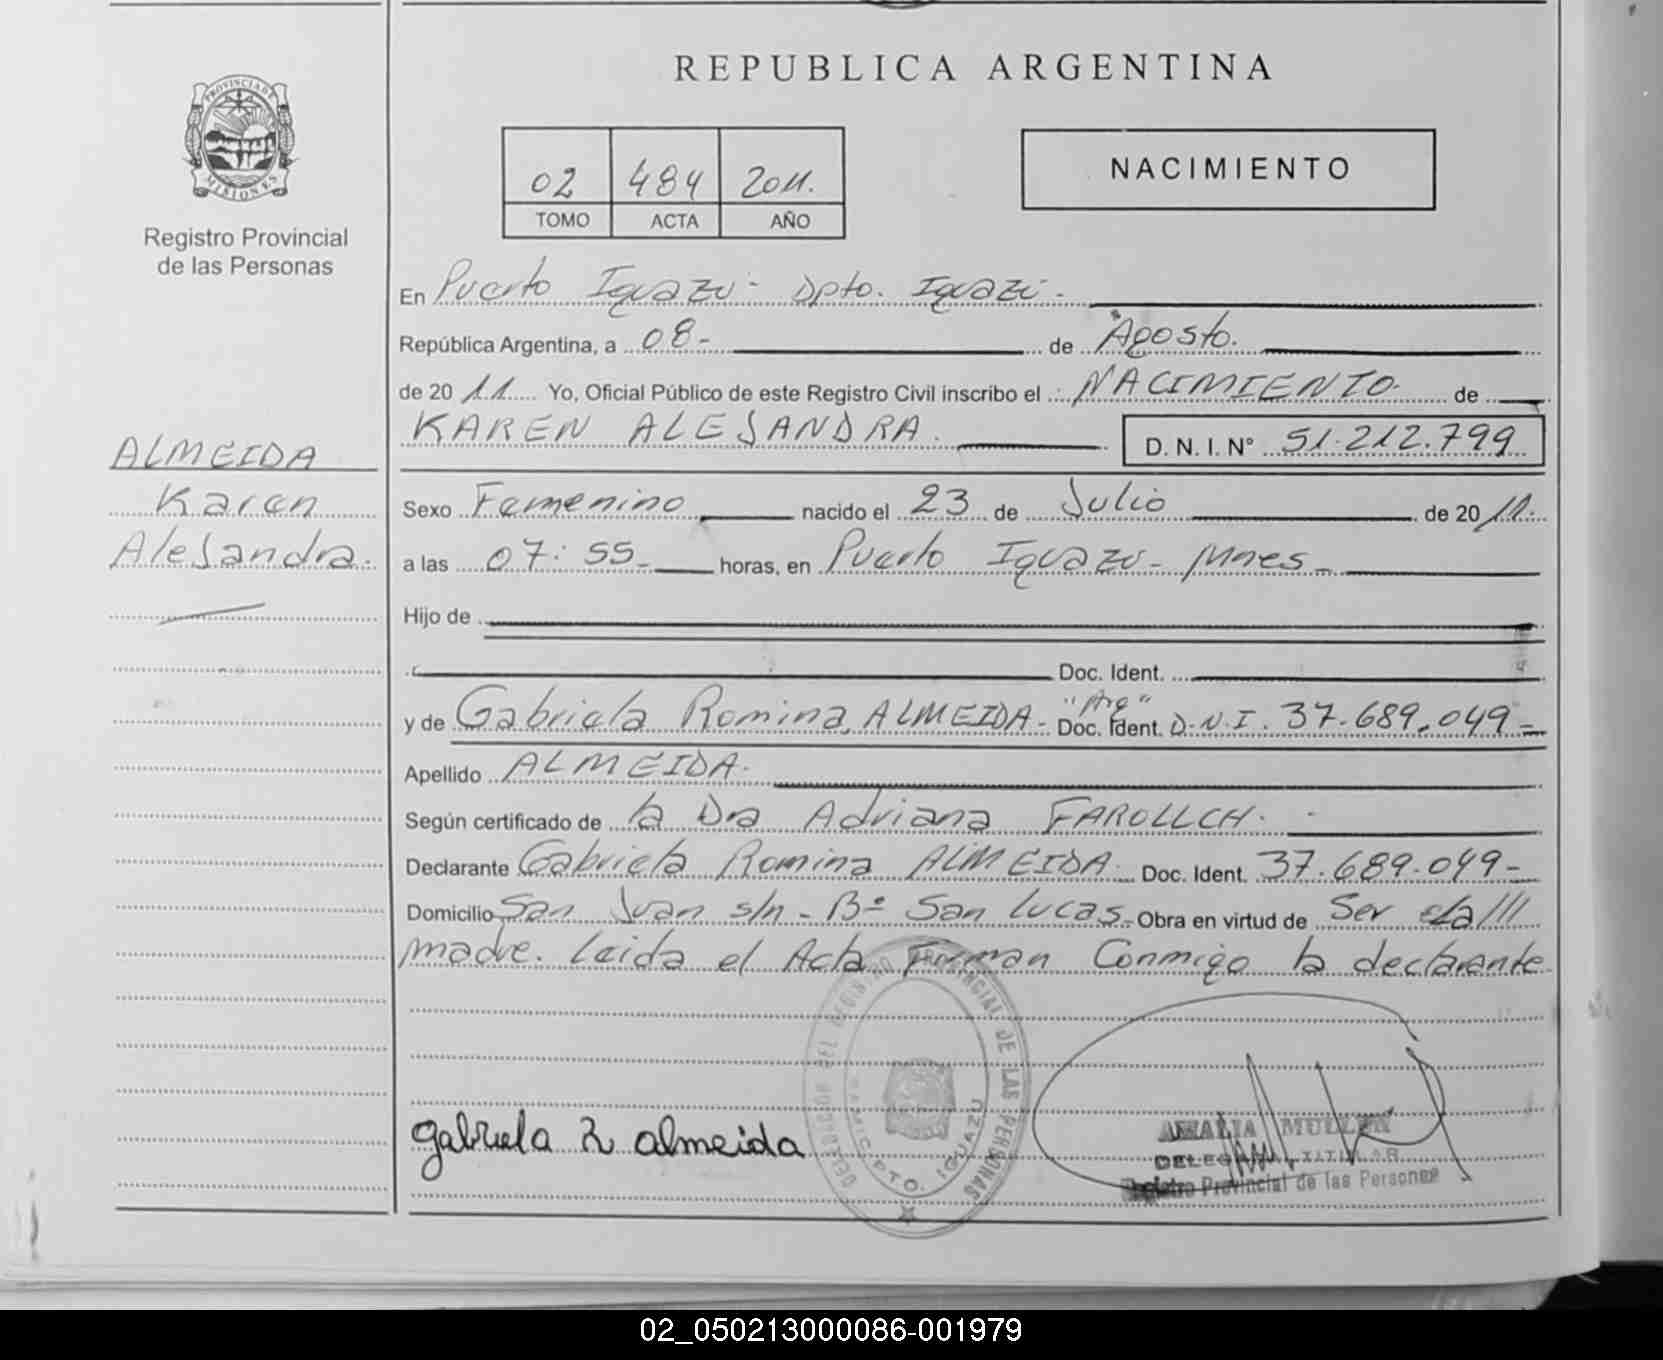 REPUBLICA ARGENTINA
PROVINCIA DE MISIONES
Registro Provincial
de las Personas
02 484 2011.
TOMO ACTA AÑO
NACIMIENTO
En Puerto Iguazú - Dpto. Iguazú -
República Argentina, a 08- de Agosto.
de 2011 Yo, Oficial Público de este Registro Civil inscribo el NACIMIENTO de
KAREN ALEJANDRA. D. N. I. N° 51.212.799
ALMEIDA
Karen
Alejandra.
Sexo Femenino nacido el 23 de Julio de 2011.
a las 07:55- horas, en Puerto Iguazú - Mnes -
Hijo de
Doc. Ident.
"Arg"
y de Gabriela Romina ALMEIDA - Doc. Ident. D.N.I. 37.689.049-
Apellido ALMEIDA.
Según certificado de la Dra Adriana FAROLLCH.
Declarante Gabriela Romina ALMEIDA. Doc. Ident. 37.689.049-
Domicilio San Juan s/n - B° San Lucas. Obra en virtud de Ser ela///
madre. Leida el Acta Firman Conmigo la declarante
gabriela R almeida
REGISTRO PROVINCIAL DE LAS PERSONAS
DPTO. IGUAZU
AMALIA MULLER
DELEGADA TITULAR
Registro Provincial de las Personas
02_050213000086-001979